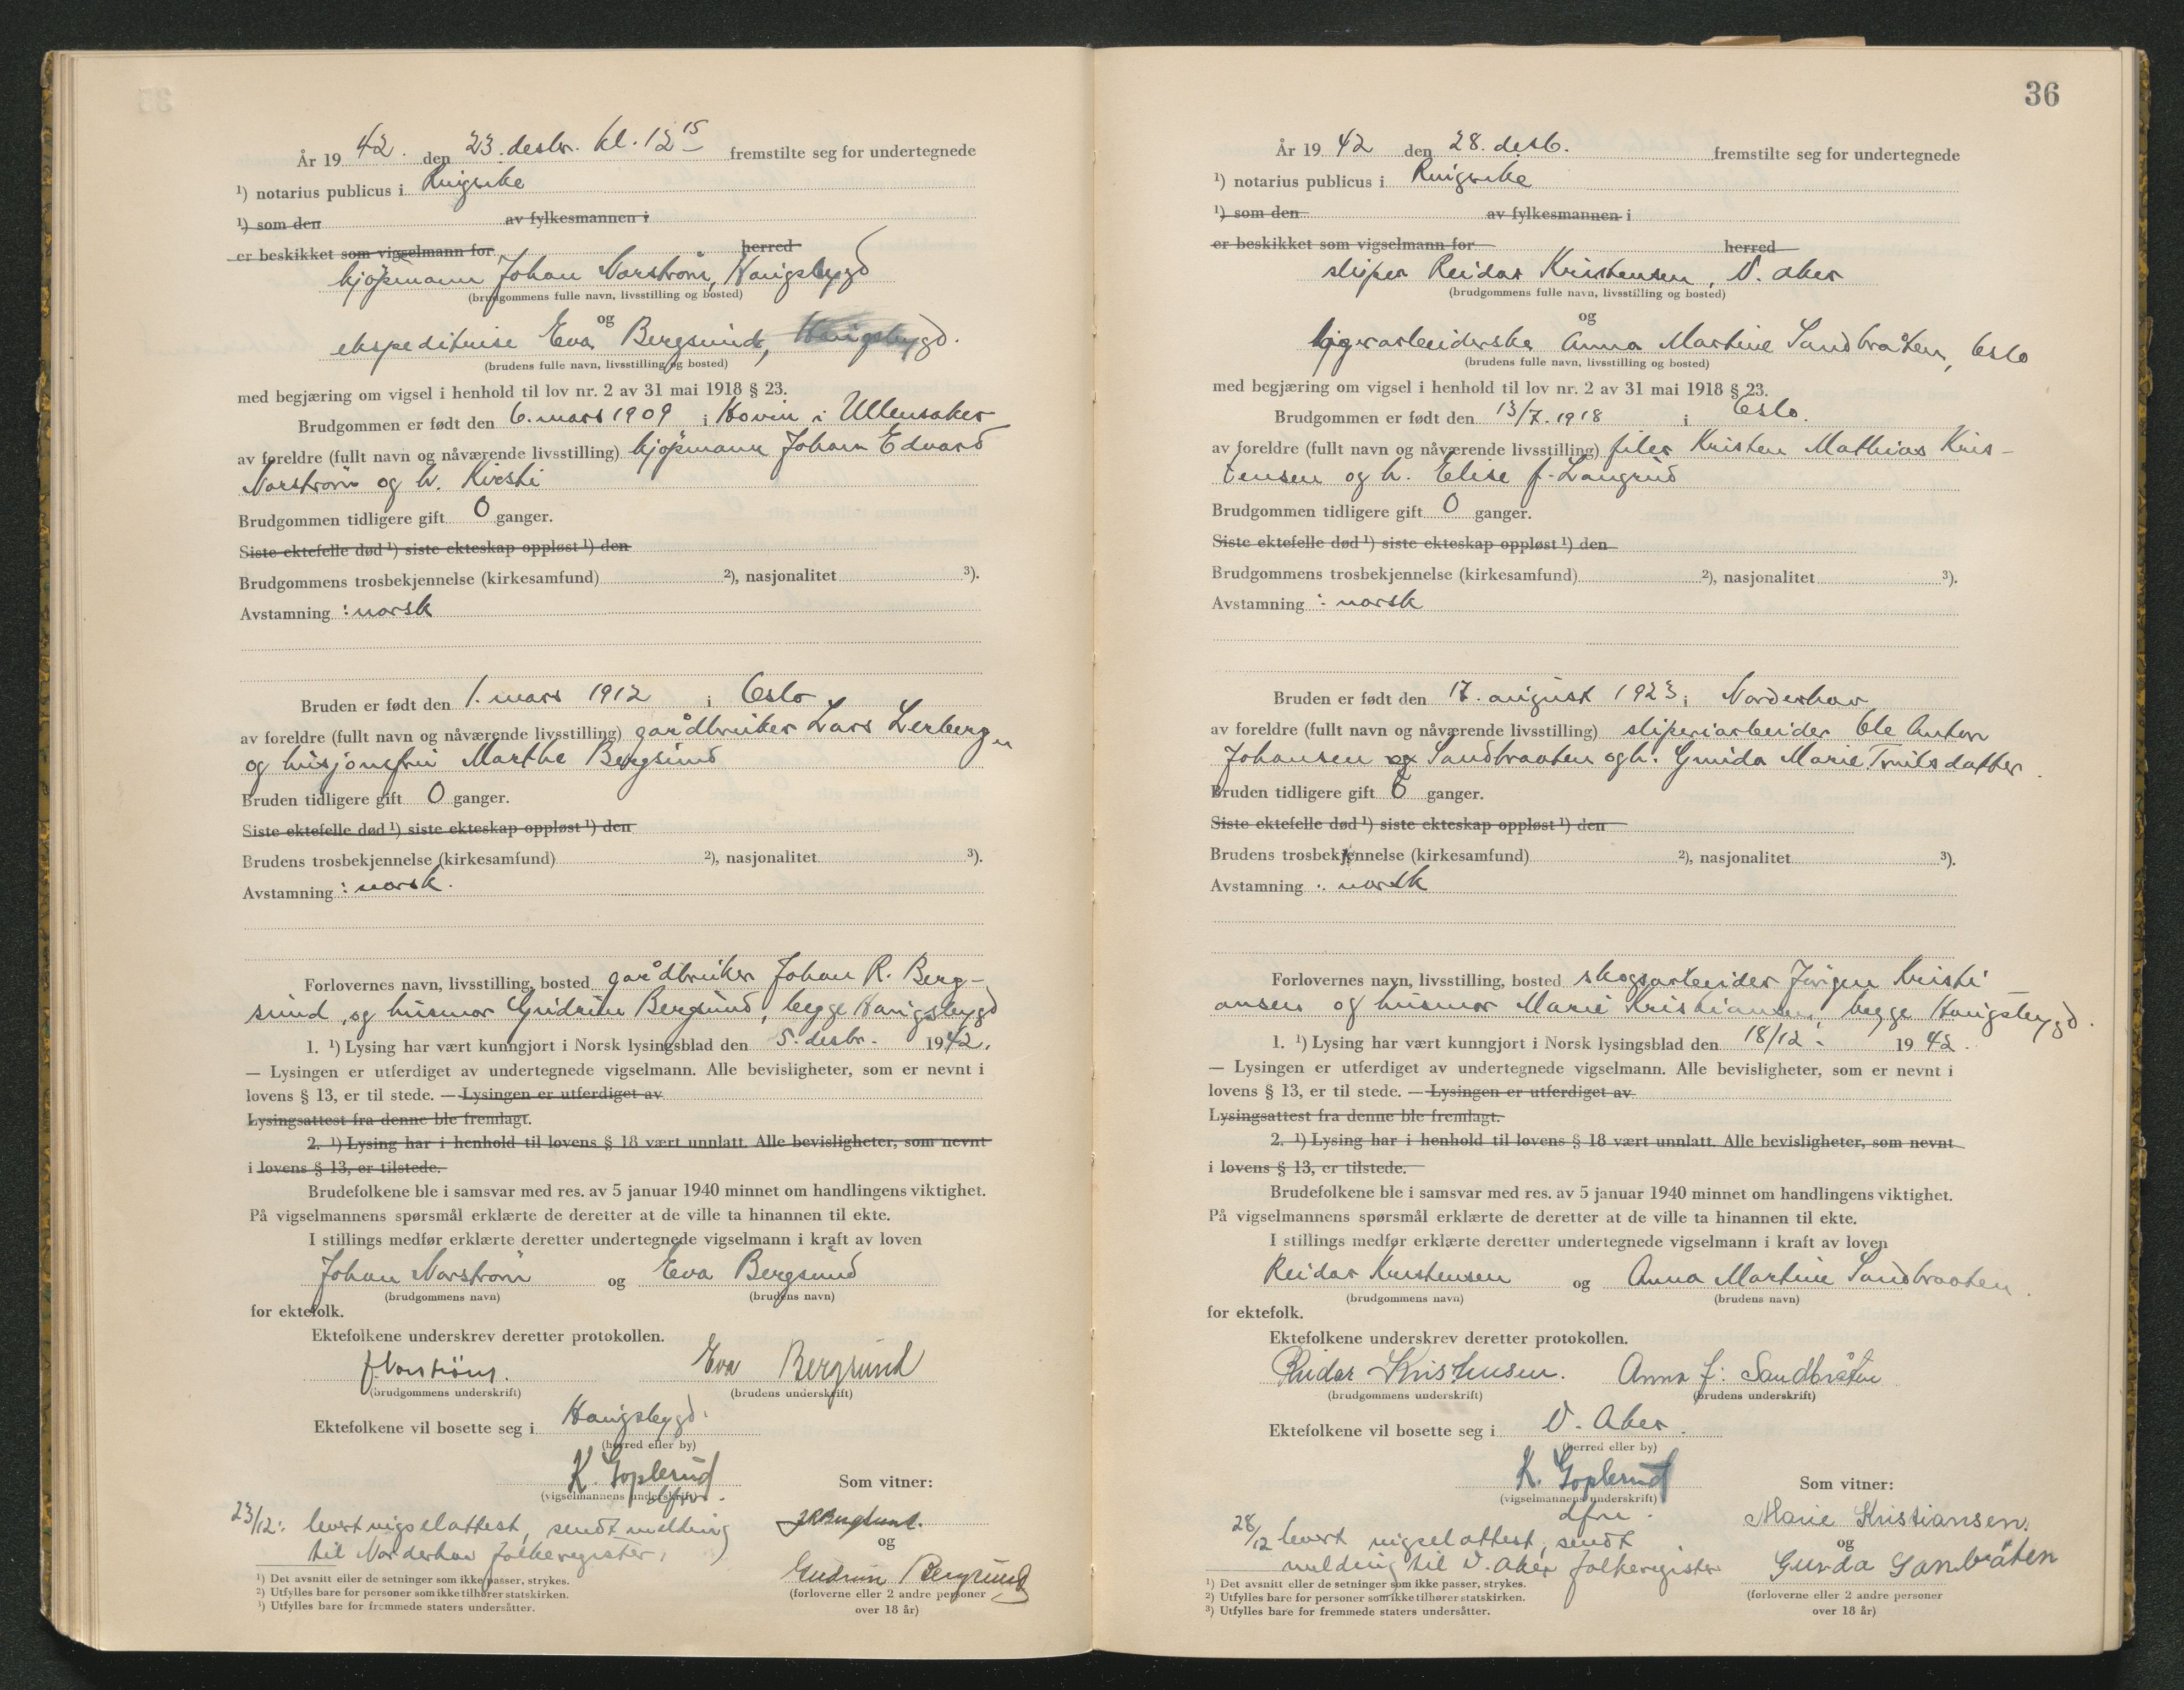 År 19 42. den 23. desbr. kl. 12 15 fremstilte seg for undertegnede
¹) notarius publicus i Ringerike
¹) som den av fylkesmannen i
er beskikket som vigselmann for herred
kjøpmann Johan Norstrøm, Haugsbygd
(brudgommens fulle navn, livsstilling og bosted)
og
ekspeditrise Eva Bergsund, Haugsbygd.
(brudens fulle navn, livsstilling og bosted)
med begjæring om vigsel i henhold til lov nr. 2 av 31 mai 1918 § 23.
Brudgommen er født den 6. mars 1909 i Hovin i Ullensaker
av foreldre (fullt navn og nåværende livsstilling) kjøpmann Johan Edvard
Norstrøm og h. Kirsti
Brudgommen tidligere gift 0 ganger.
Siste ektefelle død ¹) siste ekteskap oppløst ¹) den
Brudgommens trosbekjennelse (kirkesamfund) ²), nasjonalitet ³).
Avstamning : norsk
Bruden er født den 1. mars 1912 i Oslo
av foreldre (fullt navn og nåværende livsstilling) gårdbruker Lars Lerbergn
og husjomfru Marthe Bergsund
Bruden tidligere gift 0 ganger.
Siste ektefelle død ¹) siste ekteskap oppløst ¹) den
Brudens trosbekjennelse (kirkesamfund) ²), nasjonalitet ³).
Avstamning : norsk.
Forlovernes navn, livsstilling, bosted gårdbruker Johan R. Berg-
sund, og husmor Gudrun Bergsund, begge Haugsbygd
1. ¹) Lysing har vært kunngjort i Norsk lysingsblad den 5. desbr. 1942.
— Lysingen er utferdiget av undertegnede vigselmann. Alle bevisligheter, som er nevnt i
lovens § 13, er til stede. — Lysingen er utferdiget av
Lysingsattest fra denne ble fremlagt.
2. ¹) Lysing har i henhold til lovens § 18 vært unnlatt. Alle bevisligheter, som nevnt
i lovens § 13, er tilstede.
Brudefolkene ble i samsvar med res. av 5 januar 1940 minnet om handlingens viktighet.
På vigselmannens spørsmål erklærte de deretter at de ville ta hinannen til ekte.
I stillings medfør erklærte deretter undertegnede vigselmann i kraft av loven
Johan Norstrøm og Eva Bergsund
(brudgommens navn) (brudens navn)
for ektefolk.
Ektefolkene underskrev deretter protokollen.
J. Norstrøm. Eva Bergsund
(brudgommens underskrift) (brudens underskrift)
Ektefolkene vil bosette seg i Haugsbygd.
(herred eller by)
K. Goplerud
(vigselmannens underskrift)
dfm.
Som vitner:
23/12: levert vigselattest, sendt melding
til Norderhov folkeregister.
J R Bergsund.
og
Gudrun Bergsund
(forloverne eller 2 andre personer
over 18 år)
¹) Det avsnitt eller de setninger som ikke passer, strykes.
²) Utfylles bare for personer som ikke tilhører statskirken.
³) Utfylles bare for fremmede staters undersåtter.
36
År 19 42 den 28. desb. fremstilte seg for undertegnede
¹) notarius publicus i Ringerike
¹) som den av fylkesmannen i
er beskikket som vigselmann for herred
sliper Reidar Kristensen, V. Aker
(brudgommens fulle navn, livsstilling og bosted)
og
lagerarbeiderske Anna Martine Sandbråten, Oslo
(brudens fulle navn, livsstilling og bosted)
med begjæring om vigsel i henhold til lov nr. 2 av 31 mai 1918 § 23.
Brudgommen er født den 13/7. 1918 i Oslo.
av foreldre (fullt navn og nåværende livsstilling) filer Kristen Mathias Kris-
tensen og h. Elise f. Langrud
Brudgommen tidligere gift 0 ganger.
Siste ektefelle død ¹) siste ekteskap oppløst ¹) den
Brudgommens trosbekjennelse (kirkesamfund) ²), nasjonalitet ³).
Avstamning : norsk
Bruden er født den 17. august 1923 i Norderhov
av foreldre (fullt navn og nåværende livsstilling) sliperiarbeider Ole Anton
Johansen og Sandbraaten og h. Gunda Marie Truls datter.
Bruden tidligere gift 0 ganger.
Siste ektefelle død ¹) siste ekteskap oppløst ¹) den
Brudens trosbekjennelse (kirkesamfund) ²), nasjonalitet ³).
Avstamning : norsk
Forlovernes navn, livsstilling, bosted skogsarbeider Jørgen Kristi
ansen og husmor Marie Kristiansen, begge Haugsbygd.
1. ¹) Lysing har vært kunngjort i Norsk lysingsblad den 18/12. 19 42.
— Lysingen er utferdiget av undertegnede vigselmann. Alle bevisligheter, som er nevnt i
lovens § 13, er til stede. — Lysingen er utferdiget av
Lysingsattest fra denne ble fremlagt.
2. ¹) Lysing har i henhold til lovens § 18 vært unnlatt. Alle bevisligheter, som nevnt
i lovens § 13, er tilstede.
Brudefolkene ble i samsvar med res. av 5 januar 1940 minnet om handlingens viktighet.
På vigselmannens spørsmål erklærte de deretter at de ville ta hinannen til ekte.
I stillings medfør erklærte deretter undertegnede vigselmann i kraft av loven
Reidar Kristensen og Anna Martine Sandbraaten.
(brudgommens navn) (brudens navn)
for ektefolk.
Ektefolkene underskrev deretter protokollen.
Reidar Kristensen. Anna J: Sandbråten
(brudgommens underskrift) (brudens underskrift)
Ektefolkene vil bosette seg i V. Aker.
(herred eller by)
K. Goplerud
(vigselmannens underskrift)
dfm.
Som vitner:
28/12 levert vigselattest, sendt
melding til V. Aker folkeregister
Marie Kristiansen.
og
Gunda Sanbråten
(forloverne eller 2 andre personer
over 18 år)
¹) Det avsnitt eller de setninger som ikke passer, strykes.
²) Utfylles bare for personer som ikke tilhører statskirken.
³) Utfylles bare for fremmede staters undersåtter.